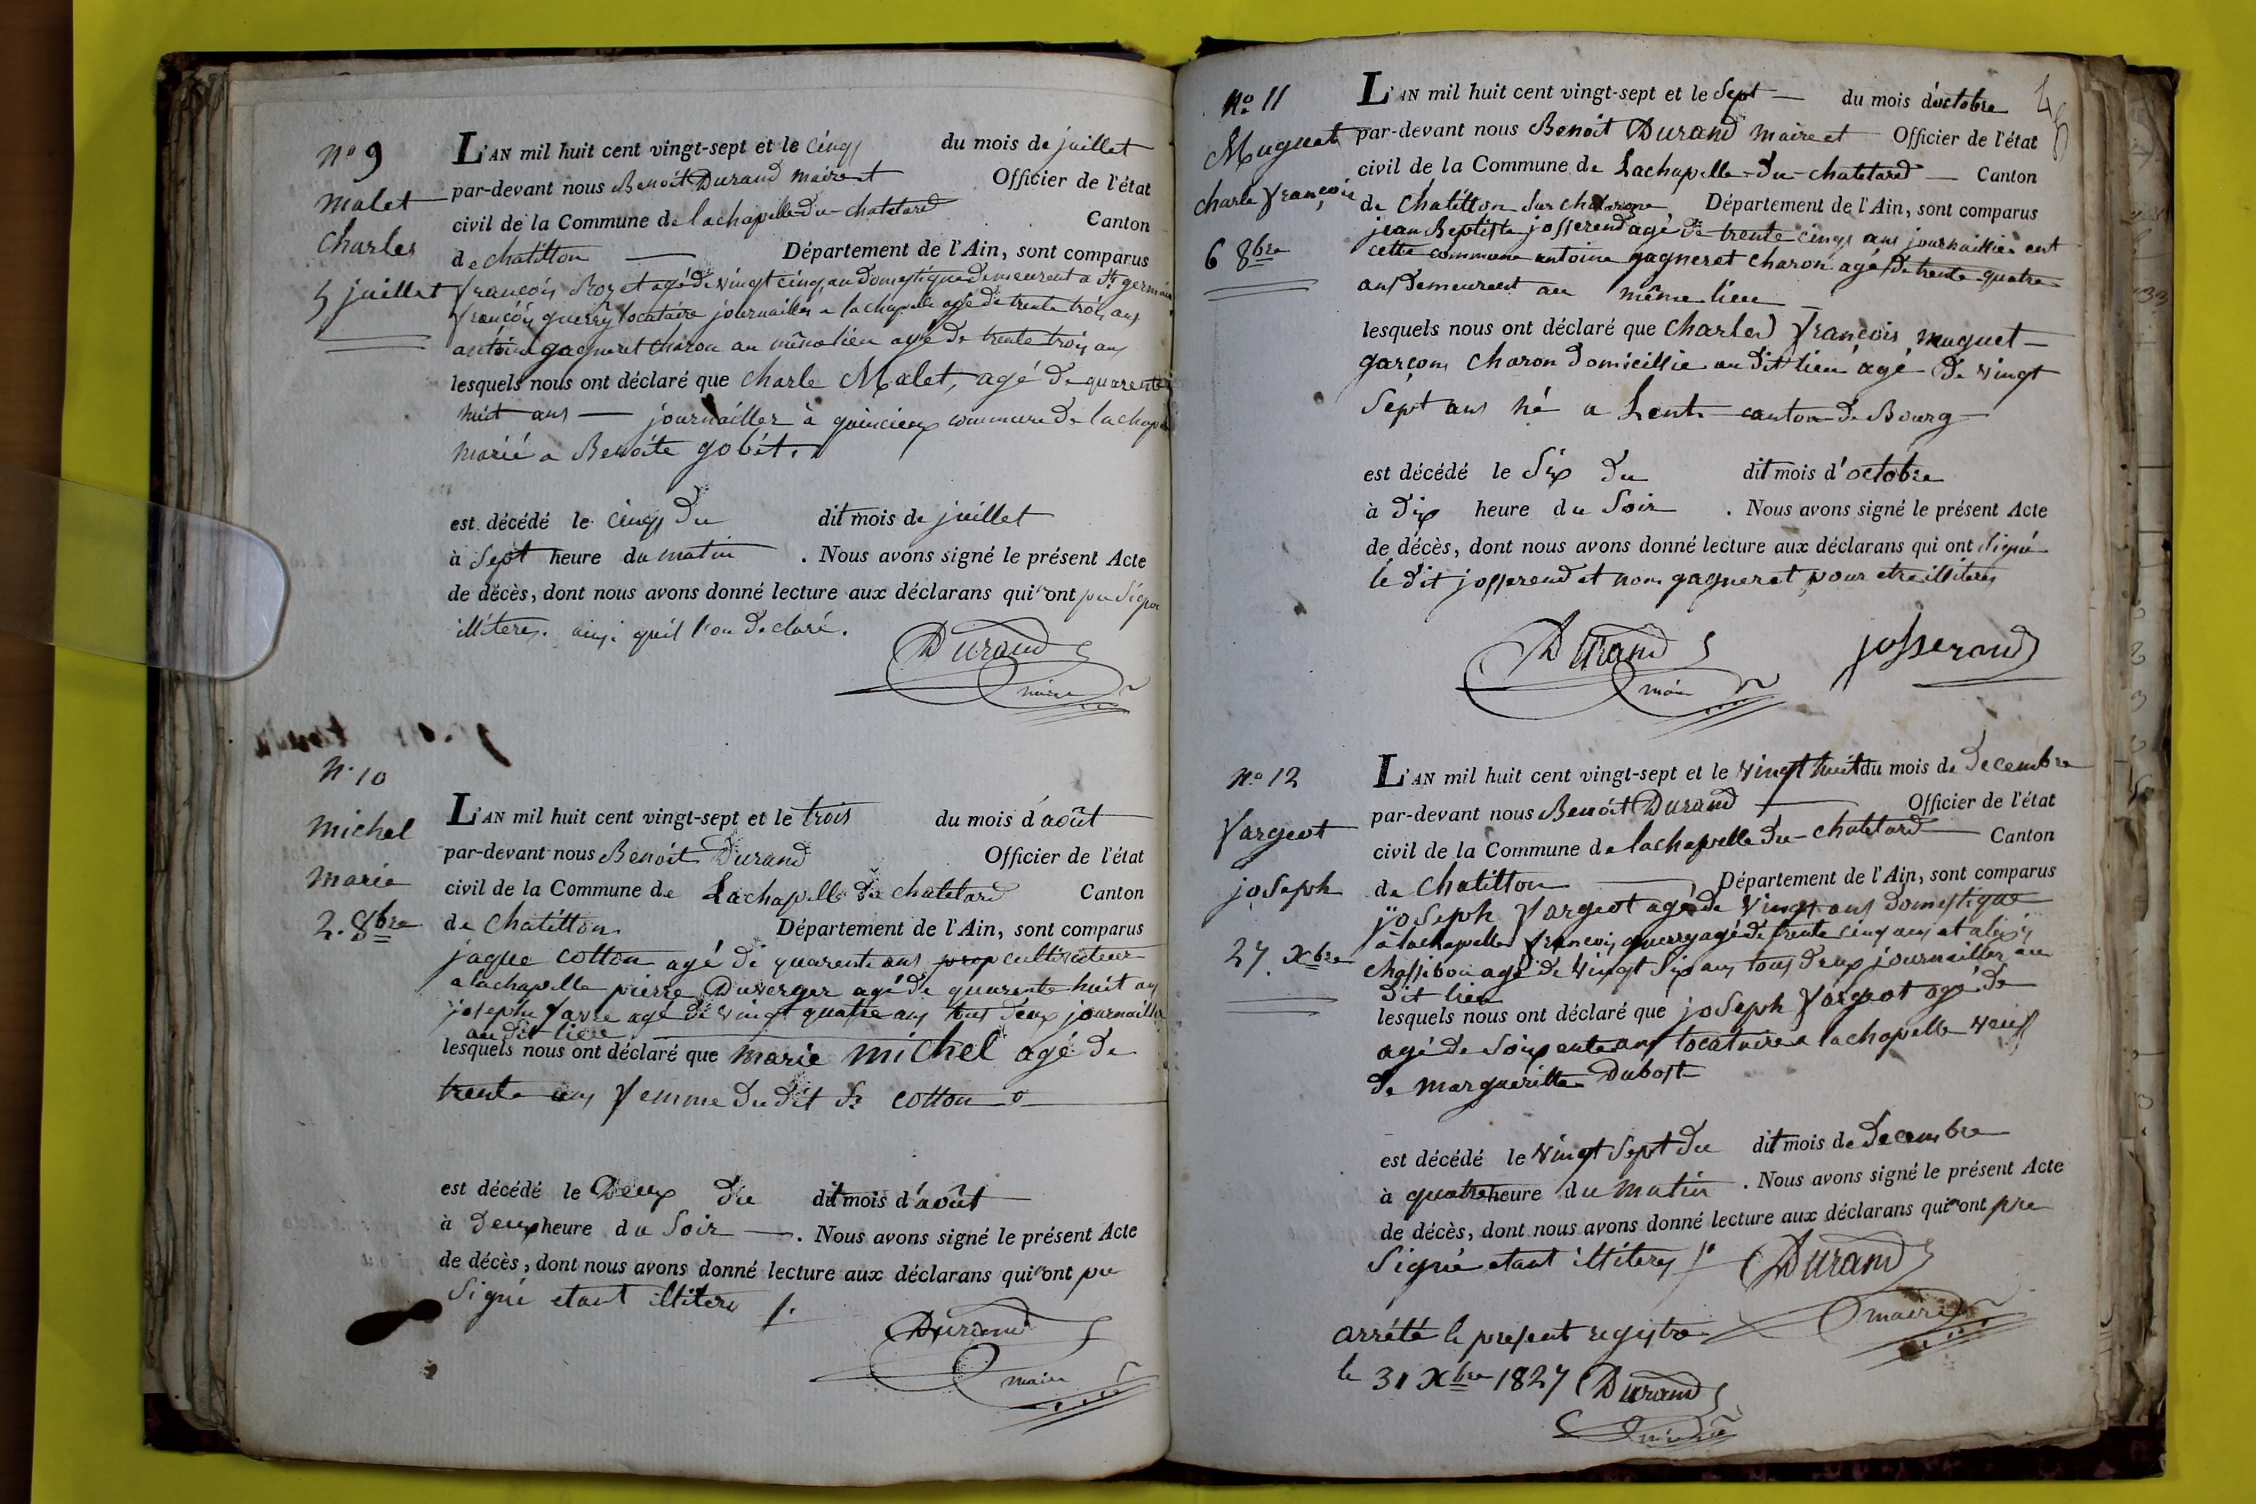 N° 9
malet
Charles
5 juillet
L'AN mil huit cent vingt-sept et le cinq du mois de juillet
par-devant nous Benoit Durand maire et Officier de l'état
civil de la Commune de lachapelle-du-chatelard Canton
de chatillon — Département de l'Ain, sont comparus
françois Royet agé de vingt cinq an domestique demeurent a St germain
françois querry locataire journaillier a lachapelle agé de trente trois ans
antoine gagneret charon au même lieu agé de trente trois ans
lesquels nous ont déclaré que charle Malet, agé de quarente
huit ans — journaillier à quincieux commune de lachapel
marié a Benoite gobét.
est décédé le cinq du dit mois de juillet
à sept heure du matin . Nous avons signé le présent Acte
de décès, dont nous avons donné lecture aux déclarans qui n'ont pu signé
illiteres. ainsi quil l'on declaré.
Durand
maire
N° 10
michel
marie
2. 8bre
L'AN mil huit cent vingt-sept et le trois du mois d'août
par-devant nous Benoit Durand Officier de l'état
civil de la Commune de Lachapelle du chatelard Canton
de chatillon Département de l'Ain, sont comparus
jaque cotton agé de quarente ans prop cultivateur
a lachapelle pierre Duverger agé de quarente huit ans
joseph favre agé de vingt quatre ans tous deux journaillier
au dit lieu
lesquels nous ont déclaré que marie michel agé de
trente ans femme du dit Sr cotton
est décédé le Deux du dit mois d'août
à deux heure du soir — . Nous avons signé le présent Acte
de décès, dont nous avons donné lecture aux déclarans qui n'ont pu
signé etant illiteres /.
Durand
maire
45
N° 11
Muguet
charle françois
6 8bre
L'AN mil huit cent vingt-sept et le sept — du mois d'octobre
par-devant nous Benoit Durand maire et Officier de l'état
civil de la Commune de Lachapelle-du-chatelard — Canton
de Chatillon sur chalarone Département de l'Ain, sont comparus
jean Baptiste josserend agé de trente cinq ans journaillier ent
cette commune antoine gagneret charon agé de trente quatre
ans demeurent au même lieu
lesquels nous ont déclaré que Charles françois muguet —
garçons charon domicillie au dit lieu agé de vingt
sept ans né a Lent canton de Bourg
est décédé le Six du dit mois d'octobre
à dix heure du soir . Nous avons signé le présent Acte
de décès, dont nous avons donné lecture aux déclarans qui ont signé
le dit josserend et non gagneret pour etre illiteres
Durand
maire
josserand
N° 12
fargeot
joseph
27. Xbre
L'AN mil huit cent vingt-sept et le vingt huit du mois de decembre
par-devant nous Benoit Durand — Officier de l'état
civil de la Commune de lachapelle du-chatelard Canton
de Chatillon — Département de l'Ain, sont comparus
joseph fargeot agé de vingt ans domestique
à lachapelle françois querry agé de trente cinq ans et alexis
chassibou agé de vingt six ans tous deux journaillier au
dit lieu
lesquels nous ont déclaré que joseph fargeot agé de
agé de soixente ans locataire a lachapelle veuf
de margueritte Dubost
est décédé le vingt sept du dit mois de decembre
à quatre heure du matin . Nous avons signé le présent Acte
de décès, dont nous avons donné lecture aux déclarans qui n'ont pu
signé etant illiteres
Durand
maire
arrété le present registre
le 31 Xbre 1827 Durand
maire